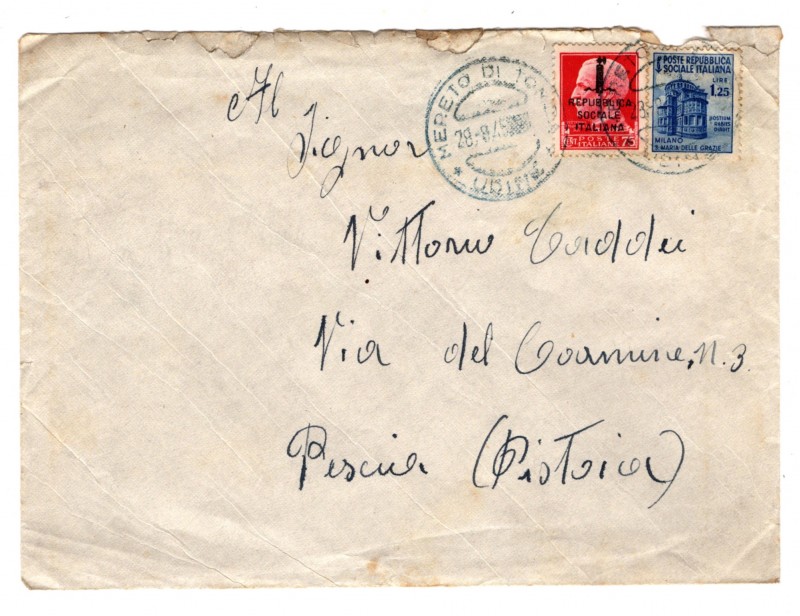 Al
Signor
Vittorio Taddei
Via del Carmine, N. 3
Pescia (Pistoia)
MERETO DI TOM
28.8.45
(UDINE)
REPUBBLICA
SOCIALE
ITALIANA
POSTE
ITALIANE
75
POSTE REPUBBLICA
SOCIALE ITALIANA
LIRE
1,25
HOSTIUM
RABIES
DIRUIT
MILANO
S. MARIA DELLE GRAZIE